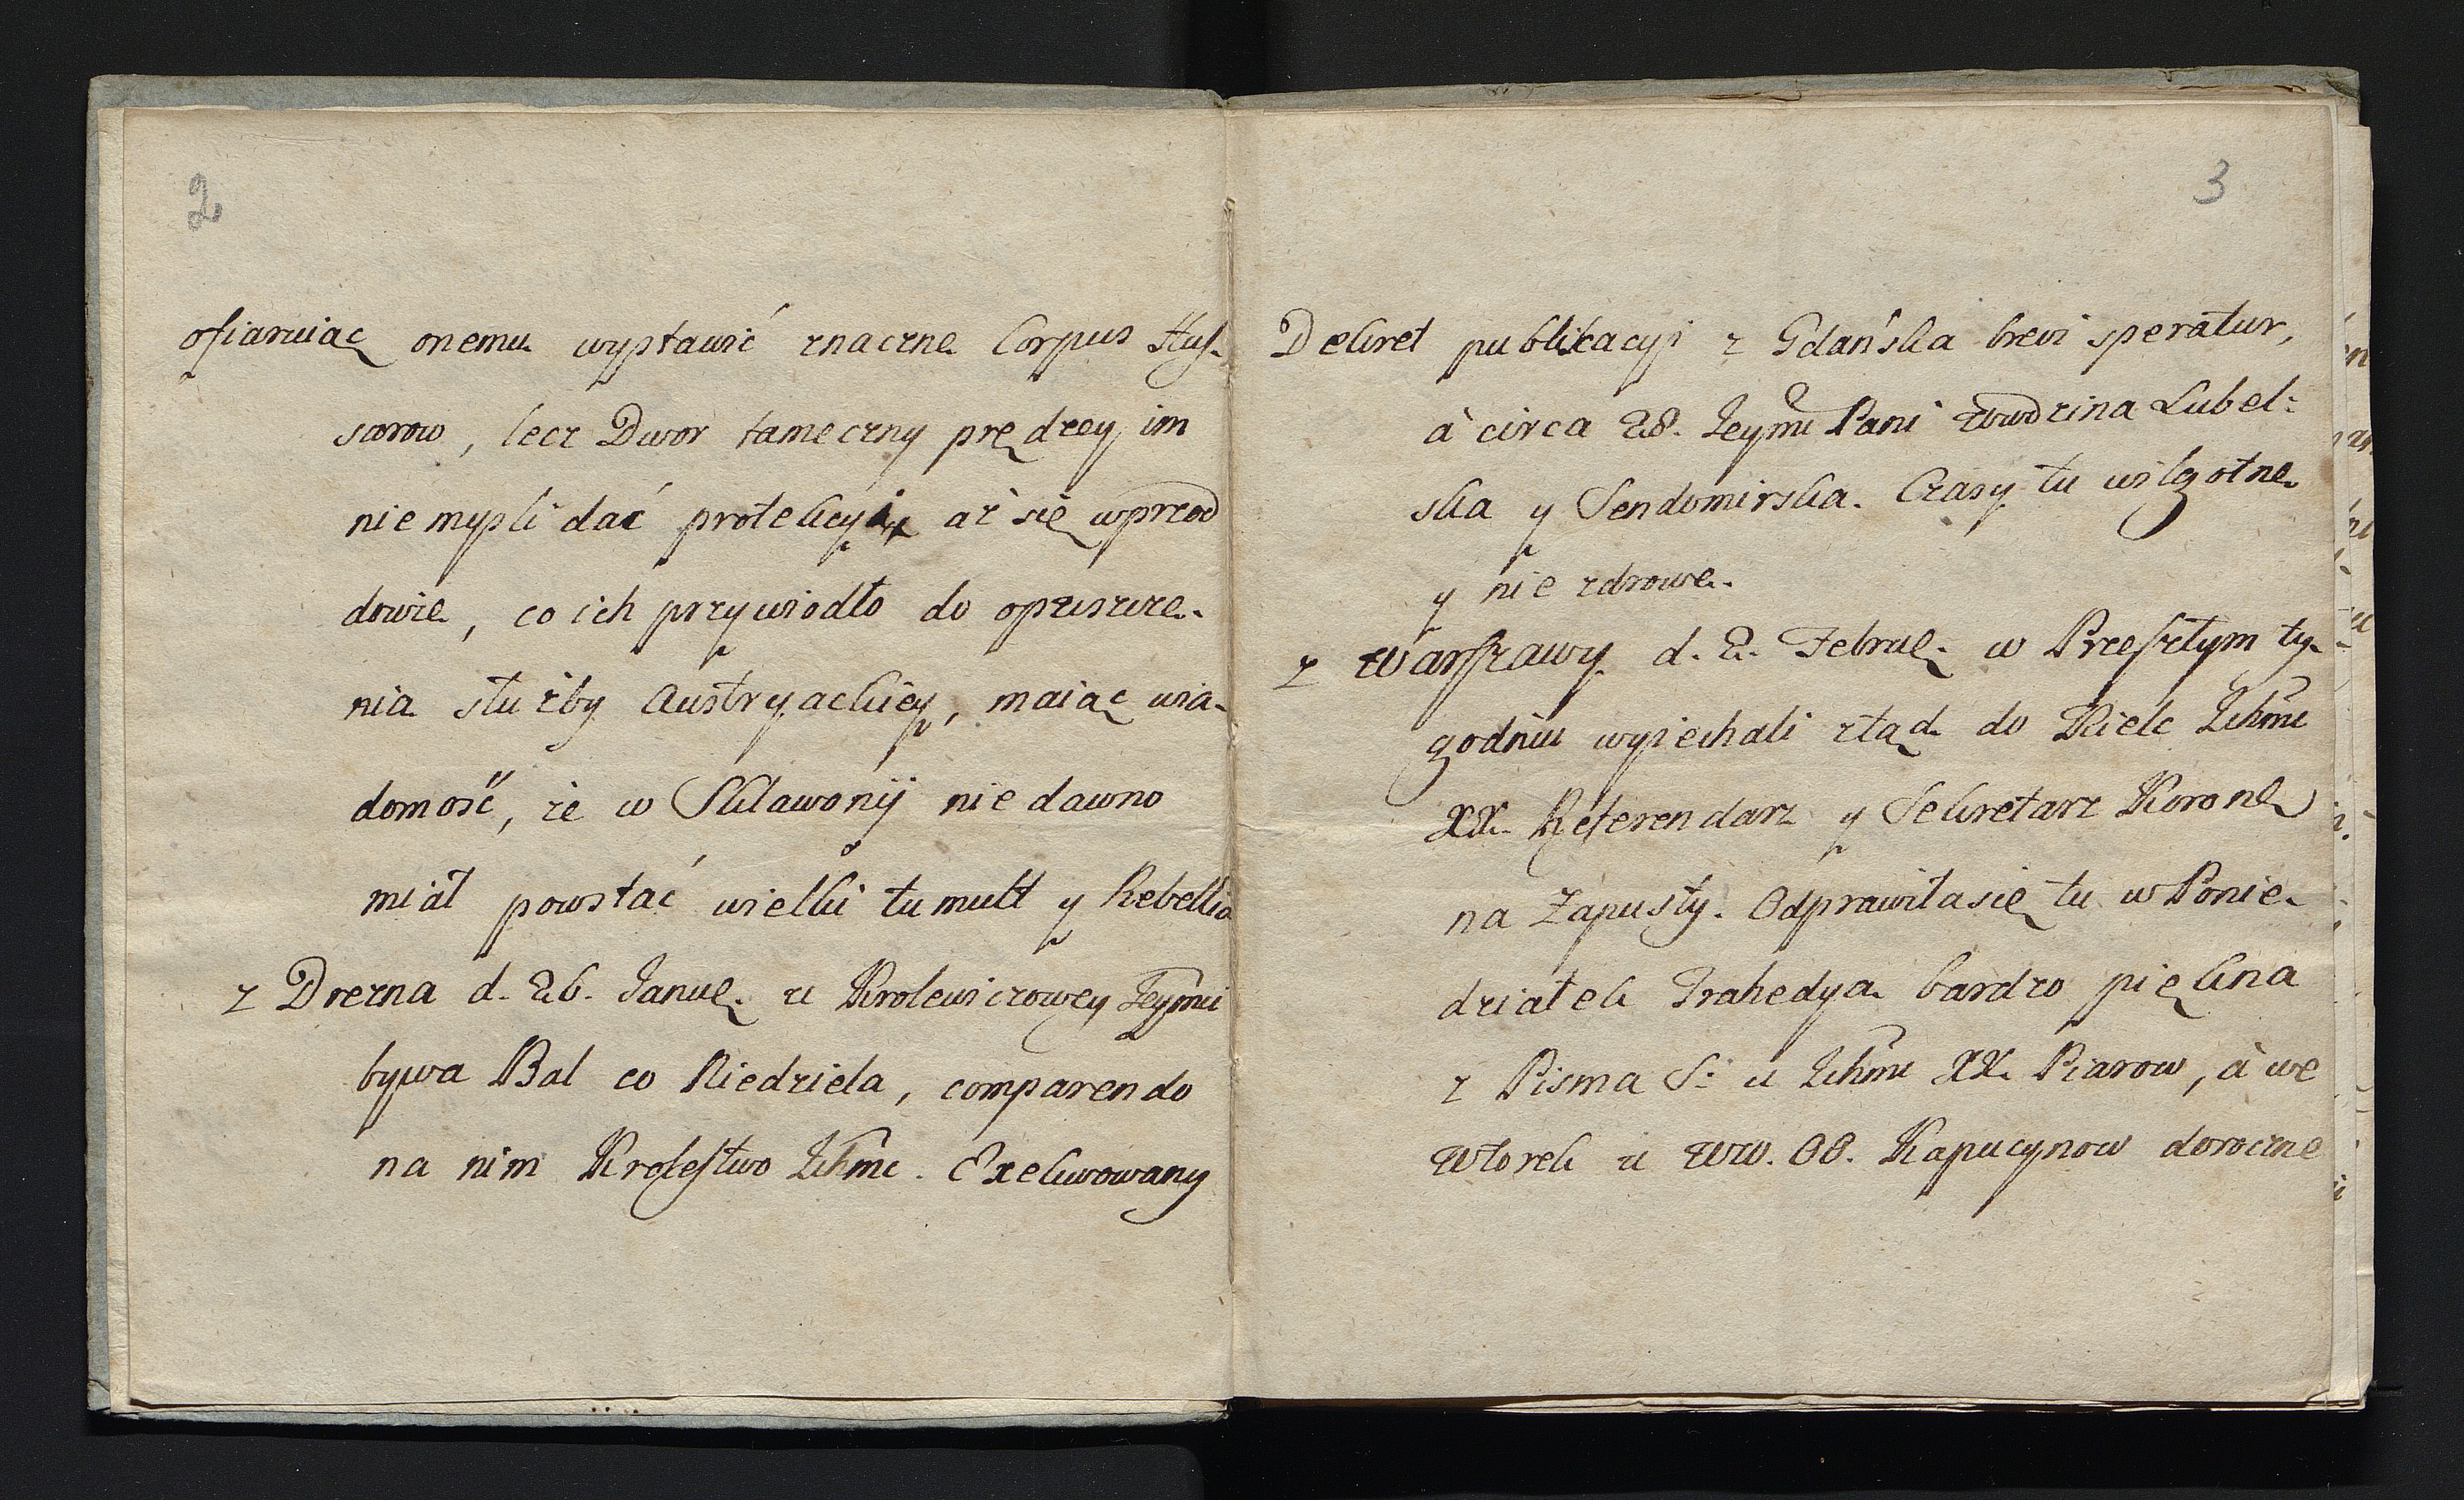 2
ofiaruiąc onemu wystawić znaczne Corpus Hus-
sarow, lecz Dwor tameczny prędzey im
nie mysli dać protekcyi aż się wprzod
dowie, co ich przywiodło do opuszcze-
nia służby Austryackiey, maiąc wia-
domość, że w Sklawonij nie dawno
miał powstać wielki tumult y Rebellia
z Drezna d. 26. Janue. u Krolewiczowey Jeymci
bywa Bal co Niedziela, comparendo
na nim Krolestwo Ichmc. Exekwowany
3
Dekret publikacyi z Gdańska brevi speratur,
à circa 28. Jeymc Pani Wwdzina Lubel-
ska y Sendomirska. Czasy tu wilgotne
y nie zdrowe.
z Warszawy d. 2. Februe. w Przeszłym ty-
godniu wyiechali ztąd do Kielc Ichmc
XX. Referendarz y Sekretarz Koronę
na Zapusty. Odprawiła się tu w Ponie-
działek Trahedya bardzo piękna
z Pisma S: u Ichmc XX. Piarow, à we
Wtorek u WW. OO. Kapucynow doroczne